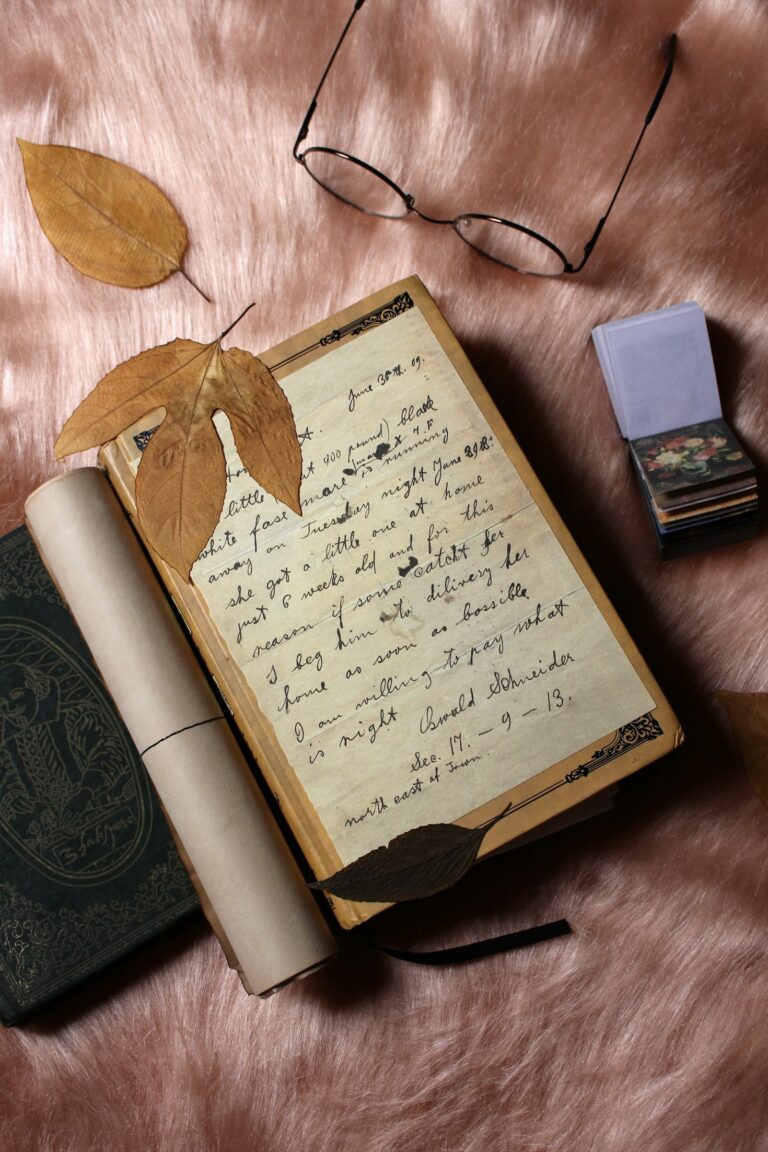 June 30th. 09.
little
400 pound) black
white fase mare X 7 F
running
away on Tuesday night June 29th.
she got a little one at home
just 6 weeks old and for this
reason if some catcht her
I beg him to dilivery her
home as soon as bossible
I am willing to pay what
is right Oswald Schneider
Sec. 17. — 9 — 13.
north east of Town.